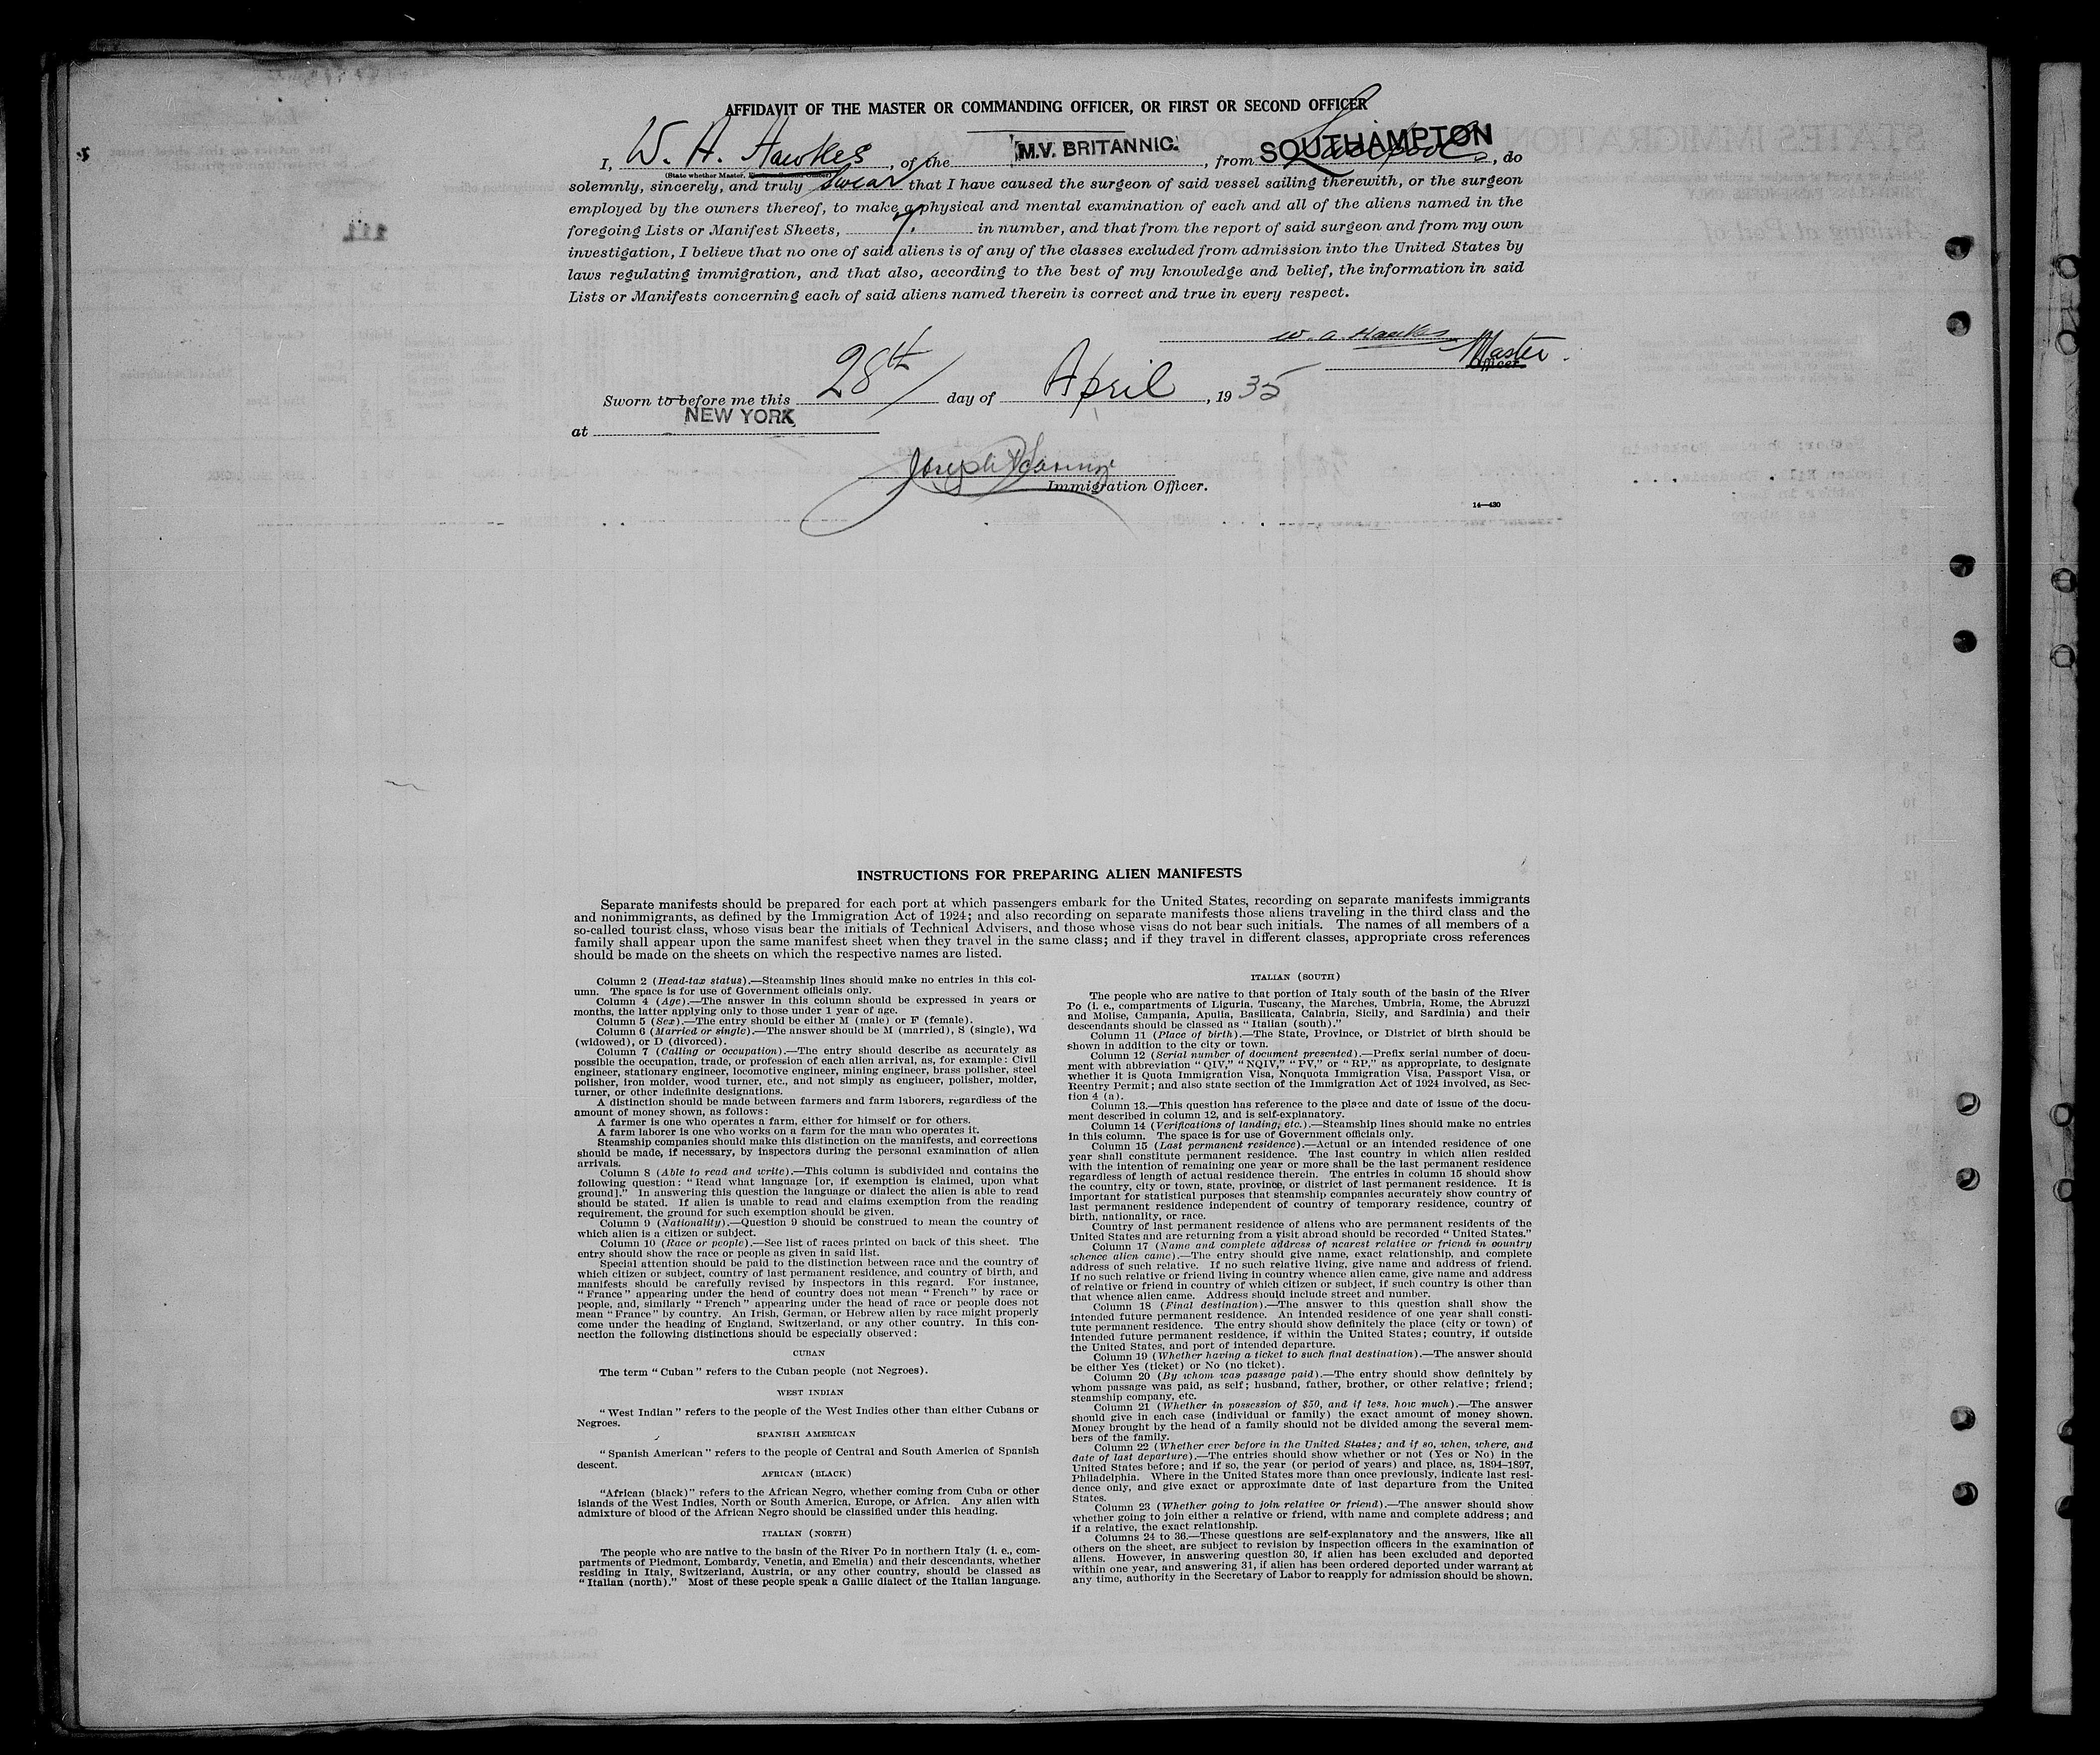 AFFIDAVIT OF THE MASTER OR COMMANDING OFFICER, OR FIRST OR SECOND OFFICER
I, W. A. Hawkes, of the M.V. BRITANNIC., from SOUTHAMPTON, do
(State whether Master, First or Second Officer)
solemnly, sincerely, and truly swear that I have caused the surgeon of said vessel sailing therewith, or the surgeon
employed by the owners thereof, to make a physical and mental examination of each and all of the aliens named in the
foregoing Lists or Manifest Sheets, 7. in number, and that from the report of said surgeon and from my own
investigation, I believe that no one of said aliens is of any of the classes excluded from admission into the United States by
laws regulating immigration, and that also, according to the best of my knowledge and belief, the information in said
Lists or Manifests concerning each of said aliens named therein is correct and true in every respect.
W. A. Hawkes
Master.
Officer.
Sworn to before me this 28th day of April, 1935
at NEW YORK
Joseph
Immigration Officer.
14—430
INSTRUCTIONS FOR PREPARING ALIEN MANIFESTS
Separate manifests should be prepared for each port at which passengers embark for the United States, recording on separate manifests immigrants
and nonimmigrants, as defined by the Immigration Act of 1924; and also recording on separate manifests those aliens traveling in the third class and the
so-called tourist class, whose visas bear the initials of Technical Advisers, and those whose visas do not bear such initials. The names of all members of a
family shall appear upon the same manifest sheet when they travel in the same class; and if they travel in different classes, appropriate cross references
should be made on the sheets on which the respective names are listed.
Column 2 (Head-tax status).—Steamship lines should make no entries in this col-
umn. The space is for use of Government officials only.
Column 4 (Age).—The answer in this column should be expressed in years or
months, the latter applying only to those under 1 year of age.
Column 5 (Sex).—The entry should be either M (male) or F (female).
Column 6 (Married or single).—The answer should be M (married), S (single), Wd
(widowed), or D (divorced).
Column 7 (Calling or occupation).—The entry should describe as accurately as
possible the occupation, trade, or profession of each alien arrival, as, for example: Civil
engineer, stationary engineer, locomotive engineer, mining engineer, brass polisher, steel
polisher, iron molder, wood turner, etc., and not simply as engineer, polisher, molder,
turner, or other indefinite designations.
A distinction should be made between farmers and farm laborers, regardless of the
amount of money shown, as follows:
A farmer is one who operates a farm, either for himself or for others.
A farm laborer is one who works on a farm for the man who operates it.
Steamship companies should make this distinction on the manifests, and corrections
should be made, if necessary, by inspectors during the personal examination of alien
arrivals.
Column 8 (Able to read and write).—This column is subdivided and contains the
following question: “Read what language [or, if exemption is claimed, upon what
ground].” In answering this question the language or dialect the alien is able to read
should be stated. If alien is unable to read and claims exemption from the reading
requirement, the ground for such exemption should be given.
Column 9 (Nationality).—Question 9 should be construed to mean the country of
which alien is a citizen or subject.
Column 10 (Race or people).—See list of races printed on back of this sheet. The
entry should show the race or people as given in said list.
Special attention should be paid to the distinction between race and the country of
which citizen or subject, country of last permanent residence, and country of birth, and
manifests should be carefully revised by inspectors in this regard. For instance,
“France” appearing under the head of country does not mean “French” by race or
people, and, similarly “French” appearing under the head of race or people does not
mean “France” by country. An Irish, German, or Hebrew alien by race might properly
come under the heading of England, Switzerland, or any other country. In this con-
nection the following distinctions should be especially observed:
CUBAN
The term “Cuban” refers to the Cuban people (not Negroes).
WEST INDIAN
“West Indian” refers to the people of the West Indies other than either Cubans or
Negroes.
SPANISH AMERICAN
“Spanish American” refers to the people of Central and South America of Spanish
descent.
AFRICAN (BLACK)
“African (black)” refers to the African Negro, whether coming from Cuba or other
islands of the West Indies, North or South America, Europe, or Africa. Any alien with
admixture of blood of the African Negro should be classified under this heading.
ITALIAN (NORTH)
The people who are native to the basin of the River Po in northern Italy (i. e., com-
partments of Piedmont, Lombardy, Venetia, and Emelia) and their descendants, whether
residing in Italy, Switzerland, Austria, or any other country, should be classed as
“Italian (north).” Most of these people speak a Gallic dialect of the Italian language.
ITALIAN (SOUTH)
The people who are native to that portion of Italy south of the basin of the River
Po (i. e., compartments of Liguria, Tuscany, the Marches, Umbria, Rome, the Abruzzi
and Molise, Campania, Apulia, Basilicata, Calabria, Sicily, and Sardinia) and their
descendants should be classed as “Italian (south).”
Column 11 (Place of birth).—The State, Province, or District of birth should be
shown in addition to the city or town.
Column 12 (Serial number of document presented).—Prefix serial number of docu-
ment with abbreviation “QIV,” “NQIV,” “PV,” or “RP,” as appropriate, to designate
whether it is Quota Immigration Visa, Nonquota Immigration Visa, Passport Visa, or
Reentry Permit; and also state section of the Immigration Act of 1924 involved, as Sec-
tion 4 (a).
Column 13.—This question has reference to the place and date of issue of the docu-
ment described in column 12, and is self-explanatory.
Column 14 (Verifications of landing, etc.).—Steamship lines should make no entries
in this column. The space is for use of Government officials only.
Column 15 (Last permanent residence).—Actual or an intended residence of one
year shall constitute permanent residence. The last country in which alien resided
with the intention of remaining one year or more shall be the last permanent residence
regardless of length of actual residence therein. The entries in column 15 should show
the country, city or town, state, province, or district of last permanent residence. It is
important for statistical purposes that steamship companies accurately show country of
last permanent residence independent of country of temporary residence, country of
birth, nationality, or race.
Country of last permanent residence of aliens who are permanent residents of the
United States and are returning from a visit abroad should be recorded “United States.”
Column 17 (Name and complete address of nearest relative or friend in country
whence alien came).—The entry should give name, exact relationship, and complete
address of such relative. If no such relative living, give name and address of friend.
If no such relative or friend living in country whence alien came, give name and address
of relative or friend in country of which citizen or subject, if such country is other than
that whence alien came. Address should include street and number.
Column 18 (Final destination).—The answer to this question shall show the
intended future permanent residence. An intended residence of one year shall consti-
tute permanent residence. The entry should show definitely the place (city or town) of
intended future permanent residence, if within the United States; country, if outside
the United States, and port of intended departure.
Column 19 (Whether having a ticket to such final destination).—The answer should
be either Yes (ticket) or No (no ticket).
Column 20 (By whom was passage paid).—The entry should show definitely by
whom passage was paid, as self; husband, father, brother, or other relative; friend;
steamship company, etc.
Column 21 (Whether in possession of $50, and if less, how much).—The answer
should give in each case (individual or family) the exact amount of money shown.
Money brought by the head of a family should not be divided among the several mem-
bers of the family.
Column 22 (Whether ever before in the United States; and if so, when, where, and
date of last departure).—The entries should show whether or not (Yes or No) in the
United States before; and if so, the year (or period of years) and place, as, 1894–1897,
Philadelphia. Where in the United States more than once previously, indicate last resi-
dence only, and give exact or approximate date of last departure from the United
States.
Column 23 (Whether going to join relative or friend).—The answer should show
whether going to join either a relative or friend, with name and complete address; and
if a relative, the exact relationship.
Columns 24 to 36.—These questions are self-explanatory and the answers, like all
others on the sheet, are subject to revision by inspection officers in the examination of
aliens. However, in answering question 30, if alien has been excluded and deported
within one year, and answering 31, if alien has been ordered deported under warrant at
any time, authority in the Secretary of Labor to reapply for admission should be shown.